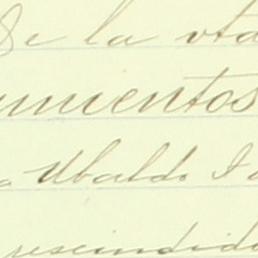 de la ota
umientos
Ubaldo I
rescindido